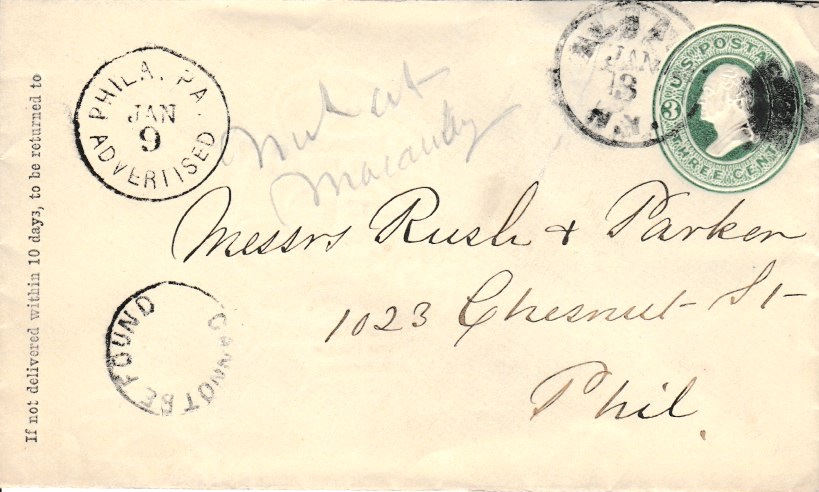 If not delivered within 10 days, to be returned to
PHILA. PA.
JAN
9
ADVERTISED
JAN
13
N.Y.
U.S. POSTAGE
3
THREE CENTS
Messrs Rush & Parker
1023 Chesnut St
Phil.
CANNOT BE FOUND